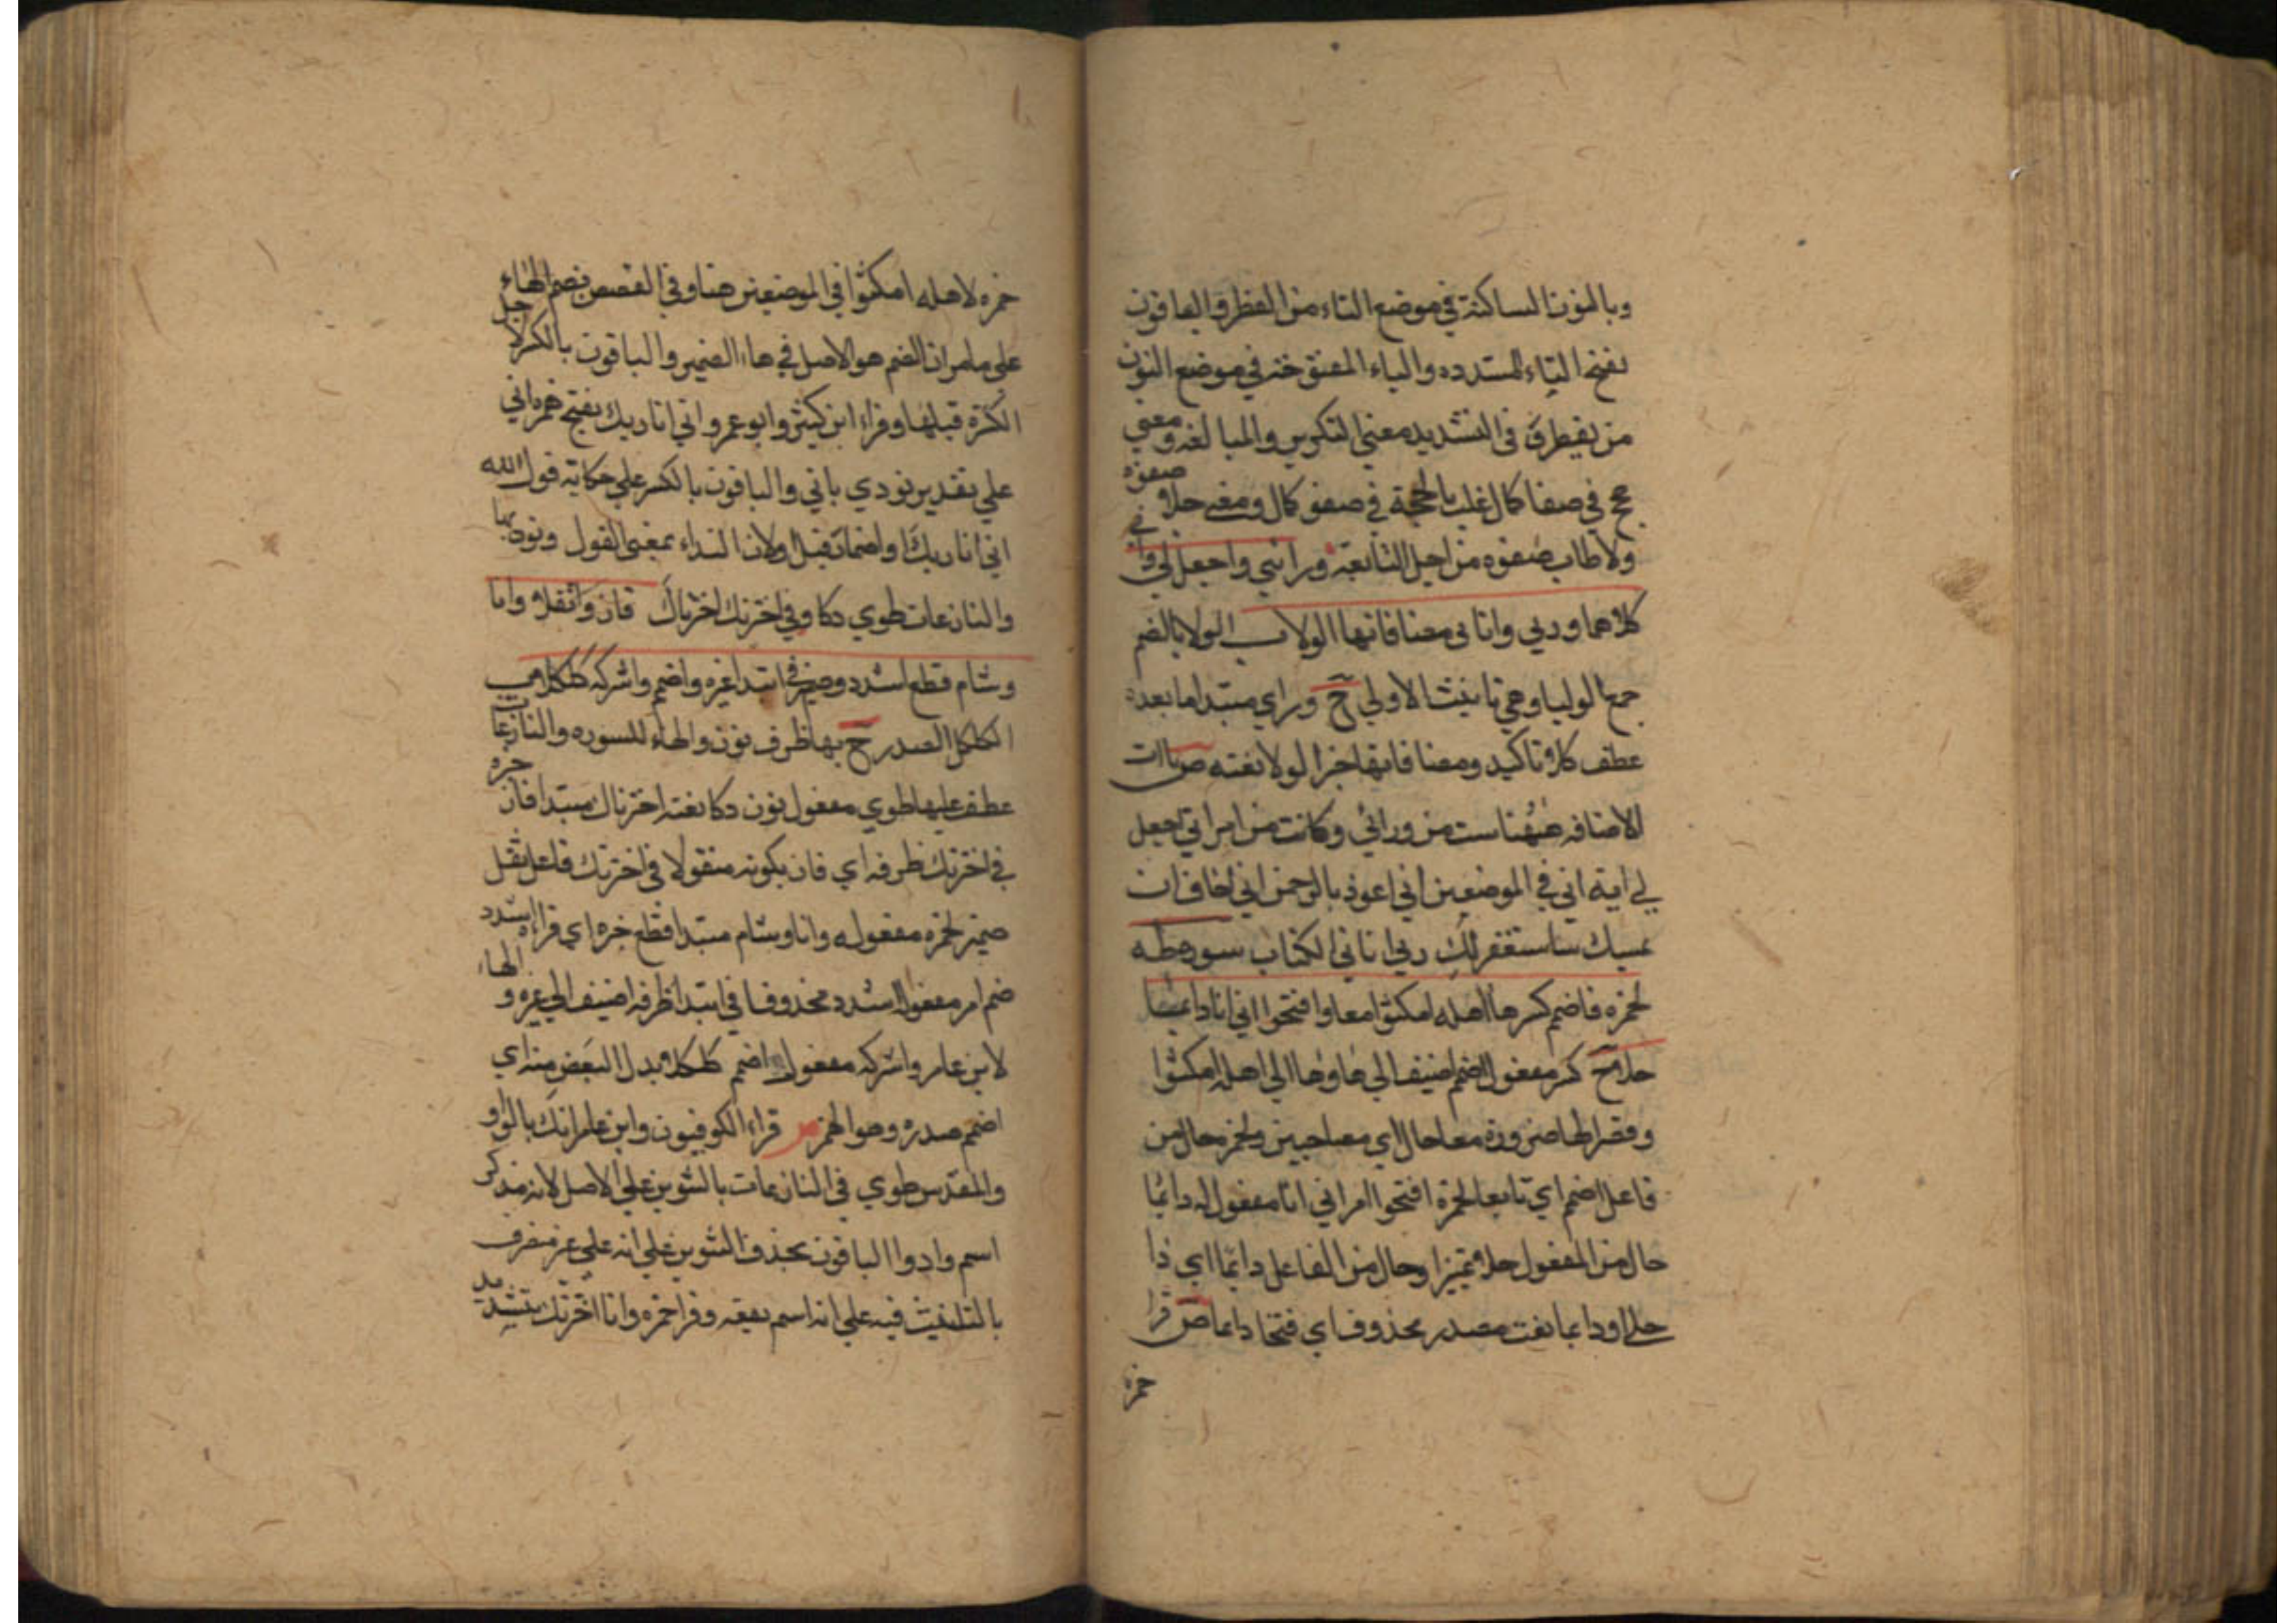 وبالنون الساكنة في موضع التاء من الفطر والباقون
بفتح التاء المشددة والياء المفتوحة في موضع النون
من يفطرن في التشديد معني التكرير والمبالغة ومعني
حج في صفا كمال غلب بالحجة في صفو كمال ومعني حلا صفوه
ولا طاب صفوه من اجل التابعة وراءي واجعل لي واني
كلاهما وربي واتاني مضافاتها الولا ب الولا بالضم
جمع الوليا وهي تانيث الاولي ح وراي مبتدا ما بعده
عطف كلاهما تاكيد ومضافاتها خبر الولا نعته ص ياات
الاضافة ههنا ست من ورائي وكانت من امراتي اجعل
لي اية اني في الموضعين اني اعوذ بالرحمن اني اخاف ان
يمسك ساستغفر لك ربي اتاني الكتاب سورة طه
لحمزه فاضمم كسرها اهله امكثوا معا وافتحوا اني انا دائما
حلا ح كسر مفعول اضمم اضيف الي ها وها الي اهله امكثوا
وقصر لها ضرورة معا حال اي مصاحبين ولحمزه حال من
فاعل اضمم اي تابعا لحمزة افتحوا امر اني انا مفعوله دائما
حال من المفعول حلا تميز او حال من الفاعل دائما اي ذا
حلا او دائما نعت مصدر محذوف اي فتحا دائما ص قرا
حمزه
حمزه لاهله امكثوا في الموضعين هنا وفي القصص بضم الهاء
علي ما مر ان الضم هو الاصل في هاء الضمير والباقون بالكسر لاجل
الكسرة قبلها وقراء ابن كثير وابو عمرو اني انا ربك بفتح همزه اني
علي تقدير نودي باني والباقون بالكسر علي حكاية قول الله
اني انا ربك او اضمار قيل او لان النداء بمعني القول ونون بها
والنازعات طوي ذكا وفي اخترتك اخترناك فاز وثقلا وانا
وشام قطع اشدد وضم في ابتدا غيره واضمم واشركه كلكلا ب
الكلكل الصدر ح بها ظرف نون والهاء للسوره والنازعات
عطف عليها طوي مفعول نون ذكا نعته اخترناك مبتدا فاز خبره
في اخترتك ظرفه اي فاز بكونه منقولا في اخترتك فاعل ثقل
ضمير لحمزه مفعوله وانا وشام مبتدا قطع خبره اي قراءه اشدد
ضم امر مفعول اشدد محذوف في ابتدا ظرفه اضيف الي غيره والهاء
لابن عامر واشركه مفعول اضمم كلكلا بدل البعض منه اي
اضمم صدره وهو الهمز ص قراء الكوفيون وابن عامر انك بالواو
والمقدس طوي في النازعات بالتنوين علي الاصل لانه مذكر
اسم واد والباقون بحذف التنوين علي انه علي غير منصرف
بالتانيث فيه علي انه اسم بقعه وقرا حمزه وانا اخترنك بتشديد